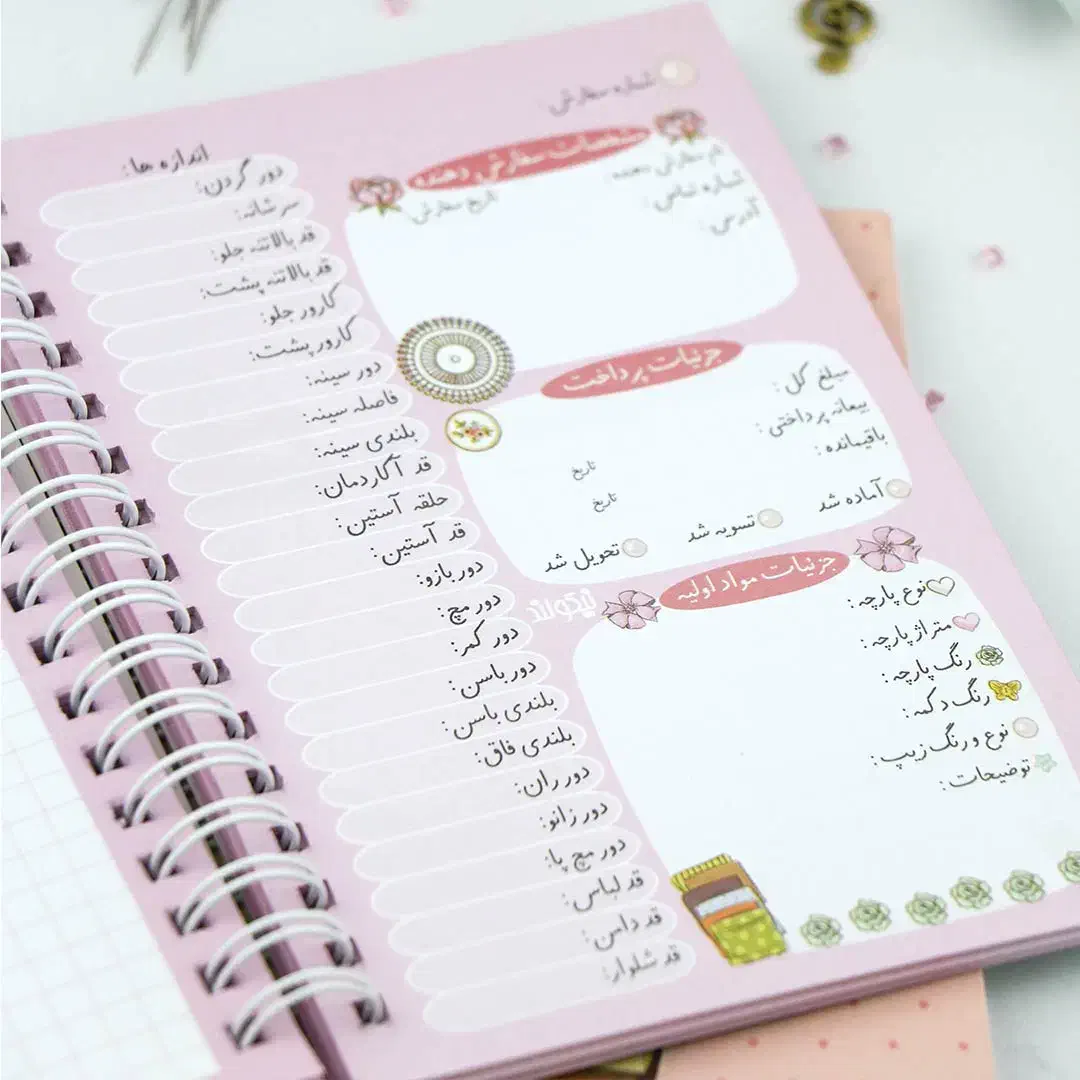 شماره سفارش:
مشخصات سفارش دهنده
نام سفارش دهنده:
تاریخ سفارش:
شماره تماس:
آدرس:
جزئیات پرداخت
مبلغ کل:
بیعانه پرداختی:
تاریخ
باقیمانده:
تاریخ
آماده شد
تسویه شد
تحویل شد
جزئیات مواد اولیه
نوع پارچه:
متراژ پارچه:
رنگ پارچه:
رنگ دکمه:
نوع و رنگ زیپ:
توضیحات:
اندازه ها:
دور گردن:
سرشانه:
قد بالاتنه جلو:
قد بالاتنه پشت:
کارور جلو:
کارور پشت:
دور سینه:
فاصله سینه:
بلندی سینه:
قد آکاردمان:
حلقه آستین:
قد آستین:
دور بازو:
دور مچ:
دور کمر:
دور باسن:
بلندی باسن:
بلندی فاق:
دور ران:
دور زانو:
دور مچ پا:
قد لباس:
قد دامن:
قد شلوار:
نیکولند